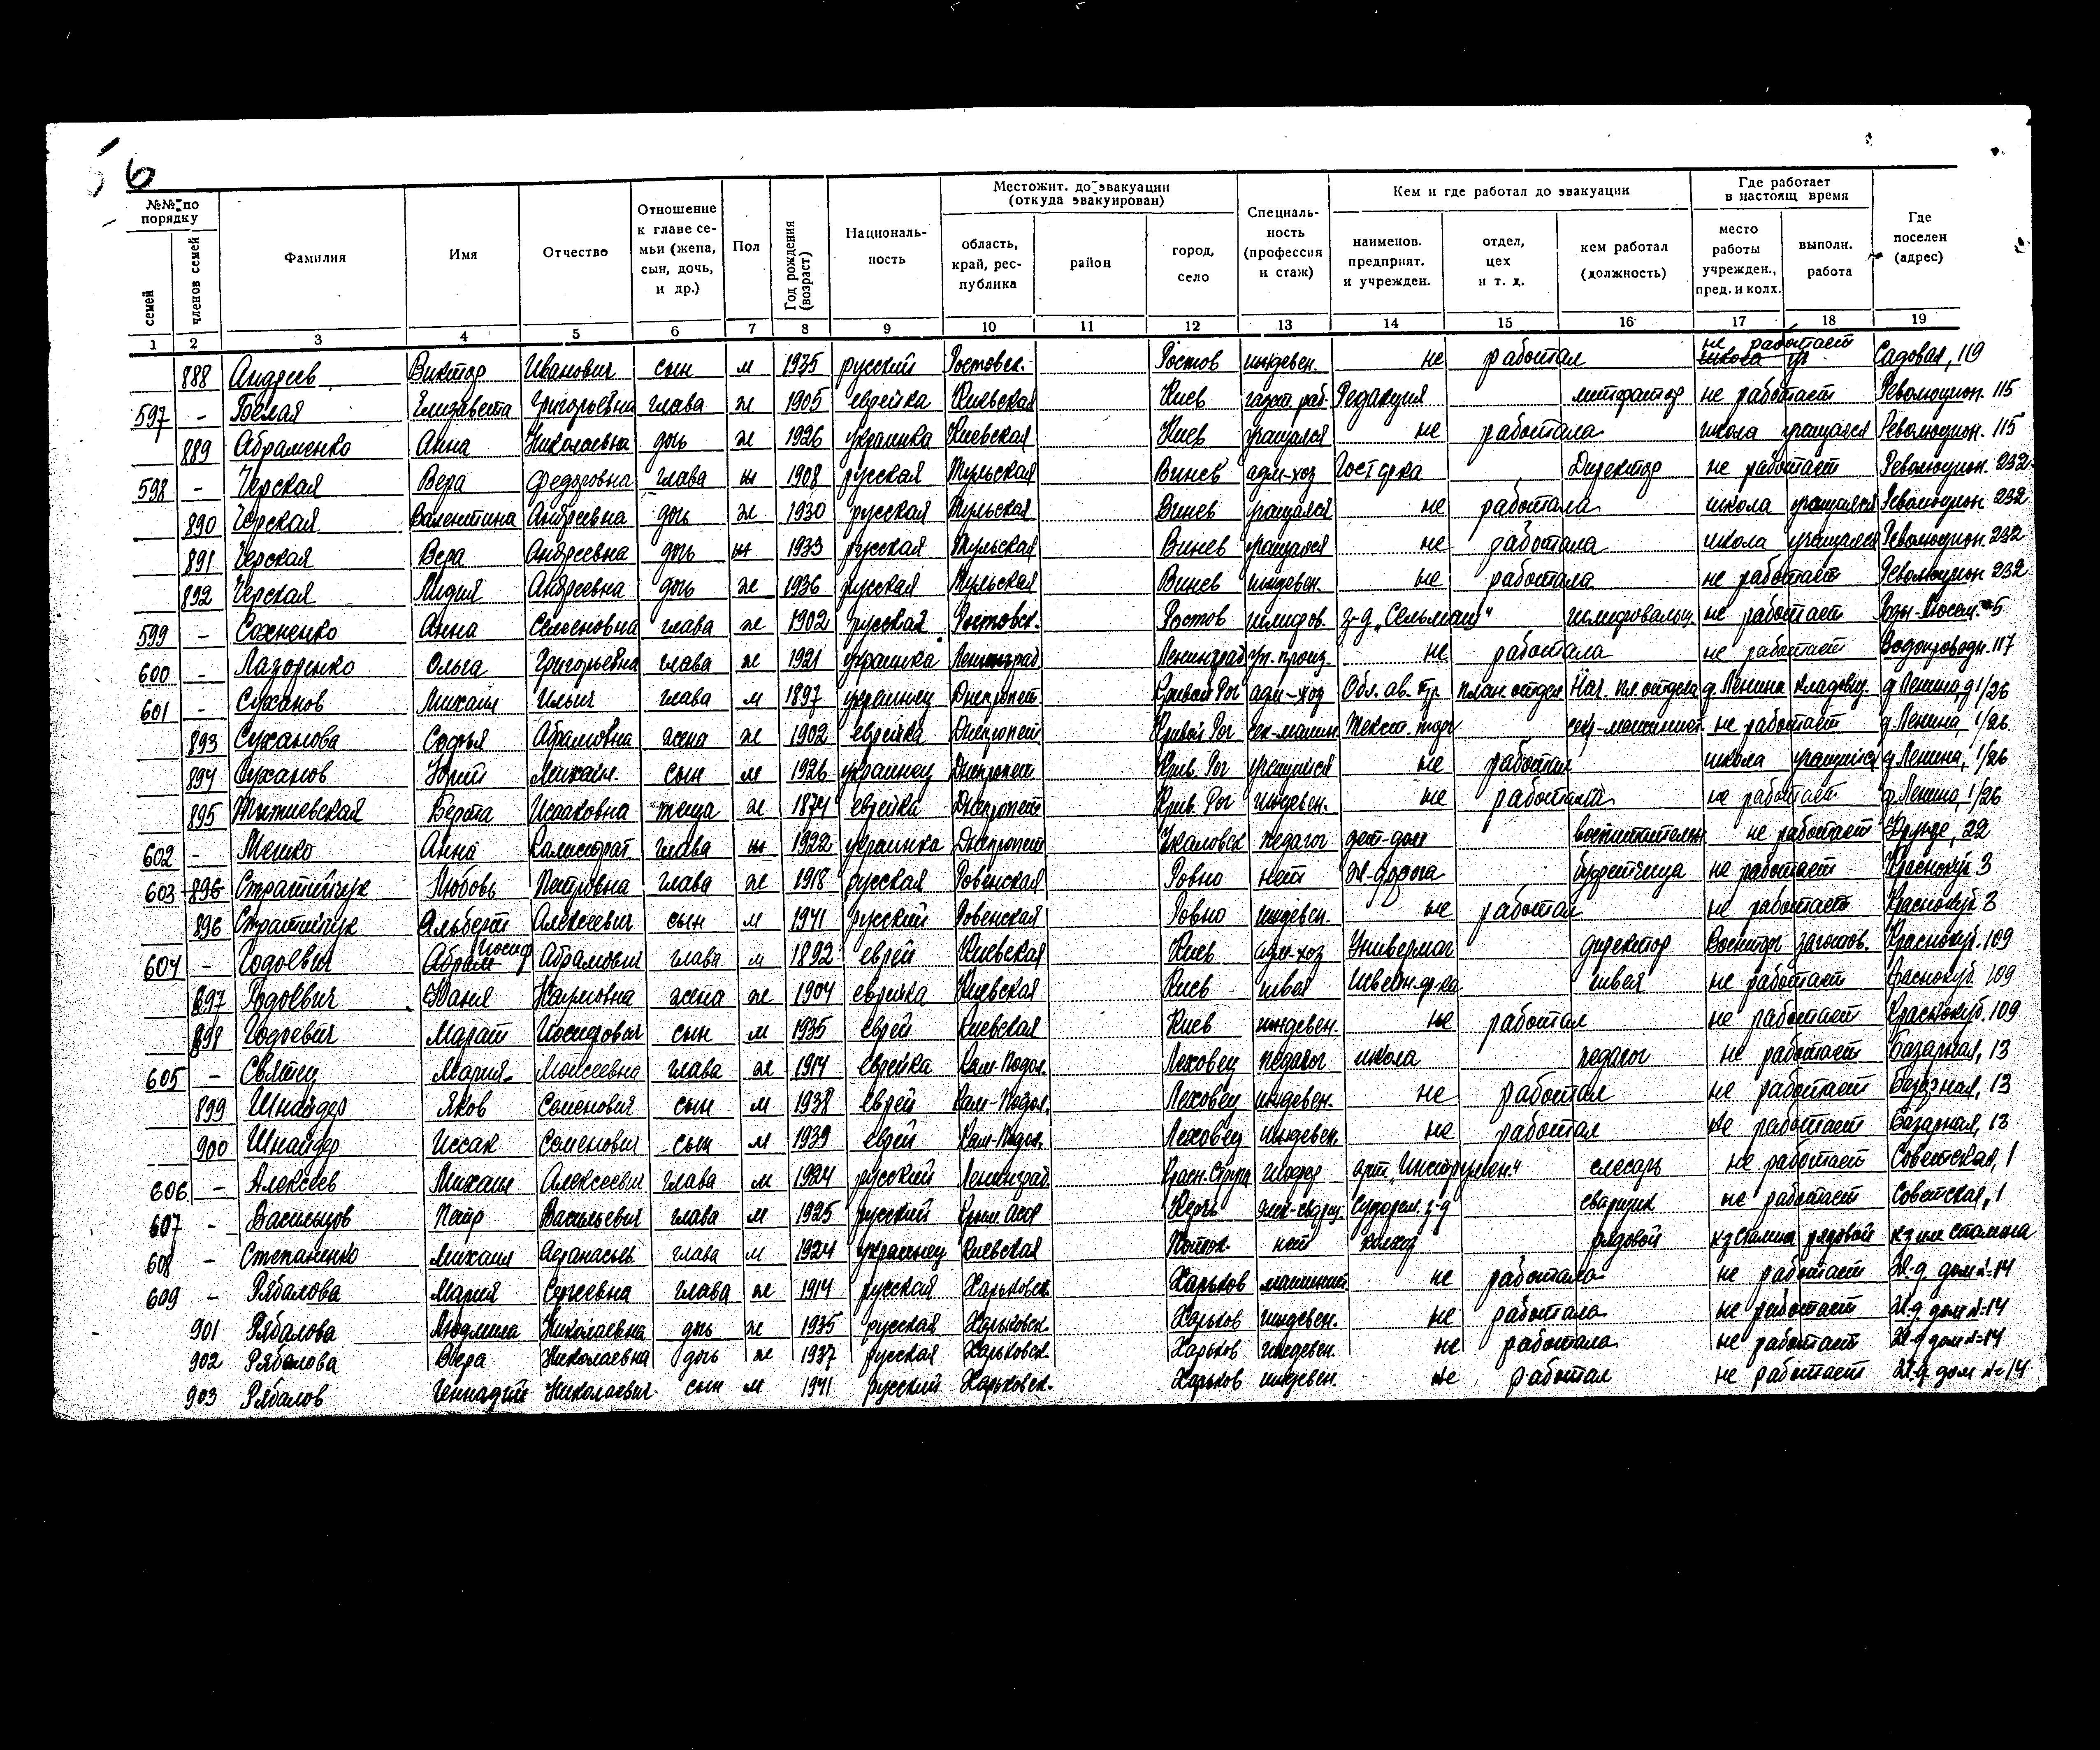 56
№№ по порядку
семей
членов семей
Фамилия
Имя
Отчество
Отношение к главе се-мьи (жена, сын, дочь, и др.)
Пол
Год рождения (возраст)
Националь-ность
Местожит. до эвакуации (откуда эвакуирован)
область, край, рес-публика
район
город, село
Специаль-ность (профессия и стаж)
Кем и где работал до эвакуации
наименов. предприят. и учрежден.
отдел, цех и т. д.
кем работал (должность)
Где работает в настоящ время
место работы учрежден., пред. и колх.
выполн. работа
Где поселен (адрес)
1 2 3 4 5 6 7 8 9 10 11 12 13 14 15 16 17 18 19
888 Андреев Виктор Иванович сын м 1935 русский Ростовск. Ростов иждевен. не работал не работает Садовая, 119
597 - Белая Елизавета Григорьевна глава ж 1905 еврейка Киевская Киев газет. раб. Редакция литфактор не работает Революцион. 115
889 Абраменко Анна Николаевна дочь ж 1926 украинка Киевская Киев учащаяся не работала школа учащаяся Революцион. 115
598 - Черская Вера Федоровна глава ж 1908 русская Тульская Винев адм-хоз Директор не работает Революцион. 232
890 Черская Валентина Андреевна дочь ж 1930 русская Тульская Винев учащаяся не работала школа учащаяся Революцион. 232
891 Черская Вера Андреевна дочь ж 1933 русская Тульская Винев учащаяся не работала школа учащаяся Революцион. 232
892 Черская Лидия Андреевна дочь ж 1936 русская Тульская Винев иждевен. не работала не работает Революцион. 232
599 - Сохненко Анна Семеновна глава ж 1902 русская Ростовск. Ростов шлифов. з-д „Сельмаш" шлифовальщ. не работает
600 - Лазоренко Ольга Григорьевна глава ж 1921 украинка Ленинград Ленинград не работала не работает Водопроводн. 117
601 - Суханов Михаил Ильич глава м 1897 украинец Днепропет. Кривой Рог адм-хоз план. отдел Нач. пл. отдела д. Ленина кладовщ. д. Ленина д 1/26
893 Суханова Софья Абрамовна жена ж 1902 еврейка Днепропет. Кривой Рог сек-машин. Текст. торг сек-машинист. не работает д. Ленина, 1/26
894 Суханов Юрий Михайл. сын м 1926 украинец Днепропет. Крив. Рог учащийся не работал школа учащийся д. Ленина, 1/26
895 Тытиевская Берта Исааковна теща ж 1874 еврейка Днепропет Крив. Рог иждевен. не работала не работает д. Ленина, 1/26
602 - Мешко Анна Калистрат. глава ж 1922 украинка Днепропет Чкаловск педагог дет-дом воспитательн. не работает Фрунзе, 22
603 896 Стратийчук Любовь Петровна глава ж 1918 русская Ровенская Ровно нет Ж-дорога буфетчица не работает Краснокуб. 3
896 Стратийчук Альберт Алексеевич сын м 1941 русский Ровенская Ровно иждевен. не работал не работает Краснокуб. 3
604 - Годоевич Абрам Иосиф Абрамович глава м 1892 еврей Киевская Киев адм-хоз Универмаг директор Военторг заготов. Краснокуб. 109
897 Годоевич Жаня Наумовна жена ж 1904 еврейка Киевская Киев швея Швейн-ф-ка швея не работает Краснокуб. 109
898 Годоевич Марат Иосифович сын м 1935 еврей Киевская Киев иждевен. не работал не работает Краснокуб. 109
605 - Святец Мария Моисеевна глава ж 1914 еврейка Кам-Подол. Леховец педагог школа педагог не работает Базарная, 13
899 Шнайдер Яков Семенович сын м 1938 еврей Кам-Подол. Леховец иждевен. не работал не работает Базарная, 13
900 Шнайдер Иссак Семенович сын м 1939 еврей Кам-Подол. Леховец иждевен. не работал не работает Базарная, 13
606 - Алексеев Михаил Алексеевич глава м 1924 русский Ленинград шофер арт. „Инструмен." слесарь не работает Советская, 1
607 - Васильцов Петр Васильевич глава м 1925 русский Крым. АССР Керчь элек-сварщ. Судорем. з-д сварщик не работает Советская, 1
608 - Степаненко Михаил Афанасьев. глава м 1924 украинец Киевская нет колхоз рядовой кз Сталина рядовой кз им Сталина
609 - Рябалова Мария Сергеевна глава ж 1914 русская Харьковск. Харьков машинист. не работала не работает Ж-д. дом №14
901 Рябалова Людмила Николаевна дочь ж 1935 русская Харьковск. Харьков иждевен. не работала не работает Ж-д дом №14
902 Рябалова Вера Николаевна дочь ж 1937 русская Харьковск. Харьков иждевен. не работала не работает Ж-д дом №14
903 Рябалов Геннадий Николаевич сын м 1941 русский Харьковск. Харьков иждевен. не работал не работает Ж-д. дом №14